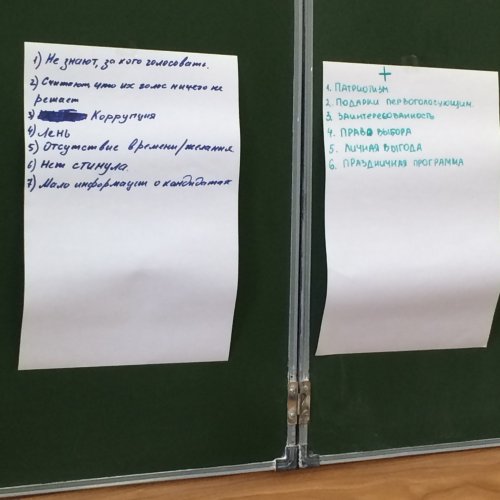 1) Не знают, за кого голосовать.
2) Считают что их голос ничего не
решает
3) Коррупция
4) Лень
5) Отсутствие времени/желания
6) Нет стимула.
7) Мало информации о кандидатах
+
1. Патриотизм
2. Подарки первоголосующим.
3. Заинтересованность
4. Право выбора
5. Личная выгода
6. Праздничная программа